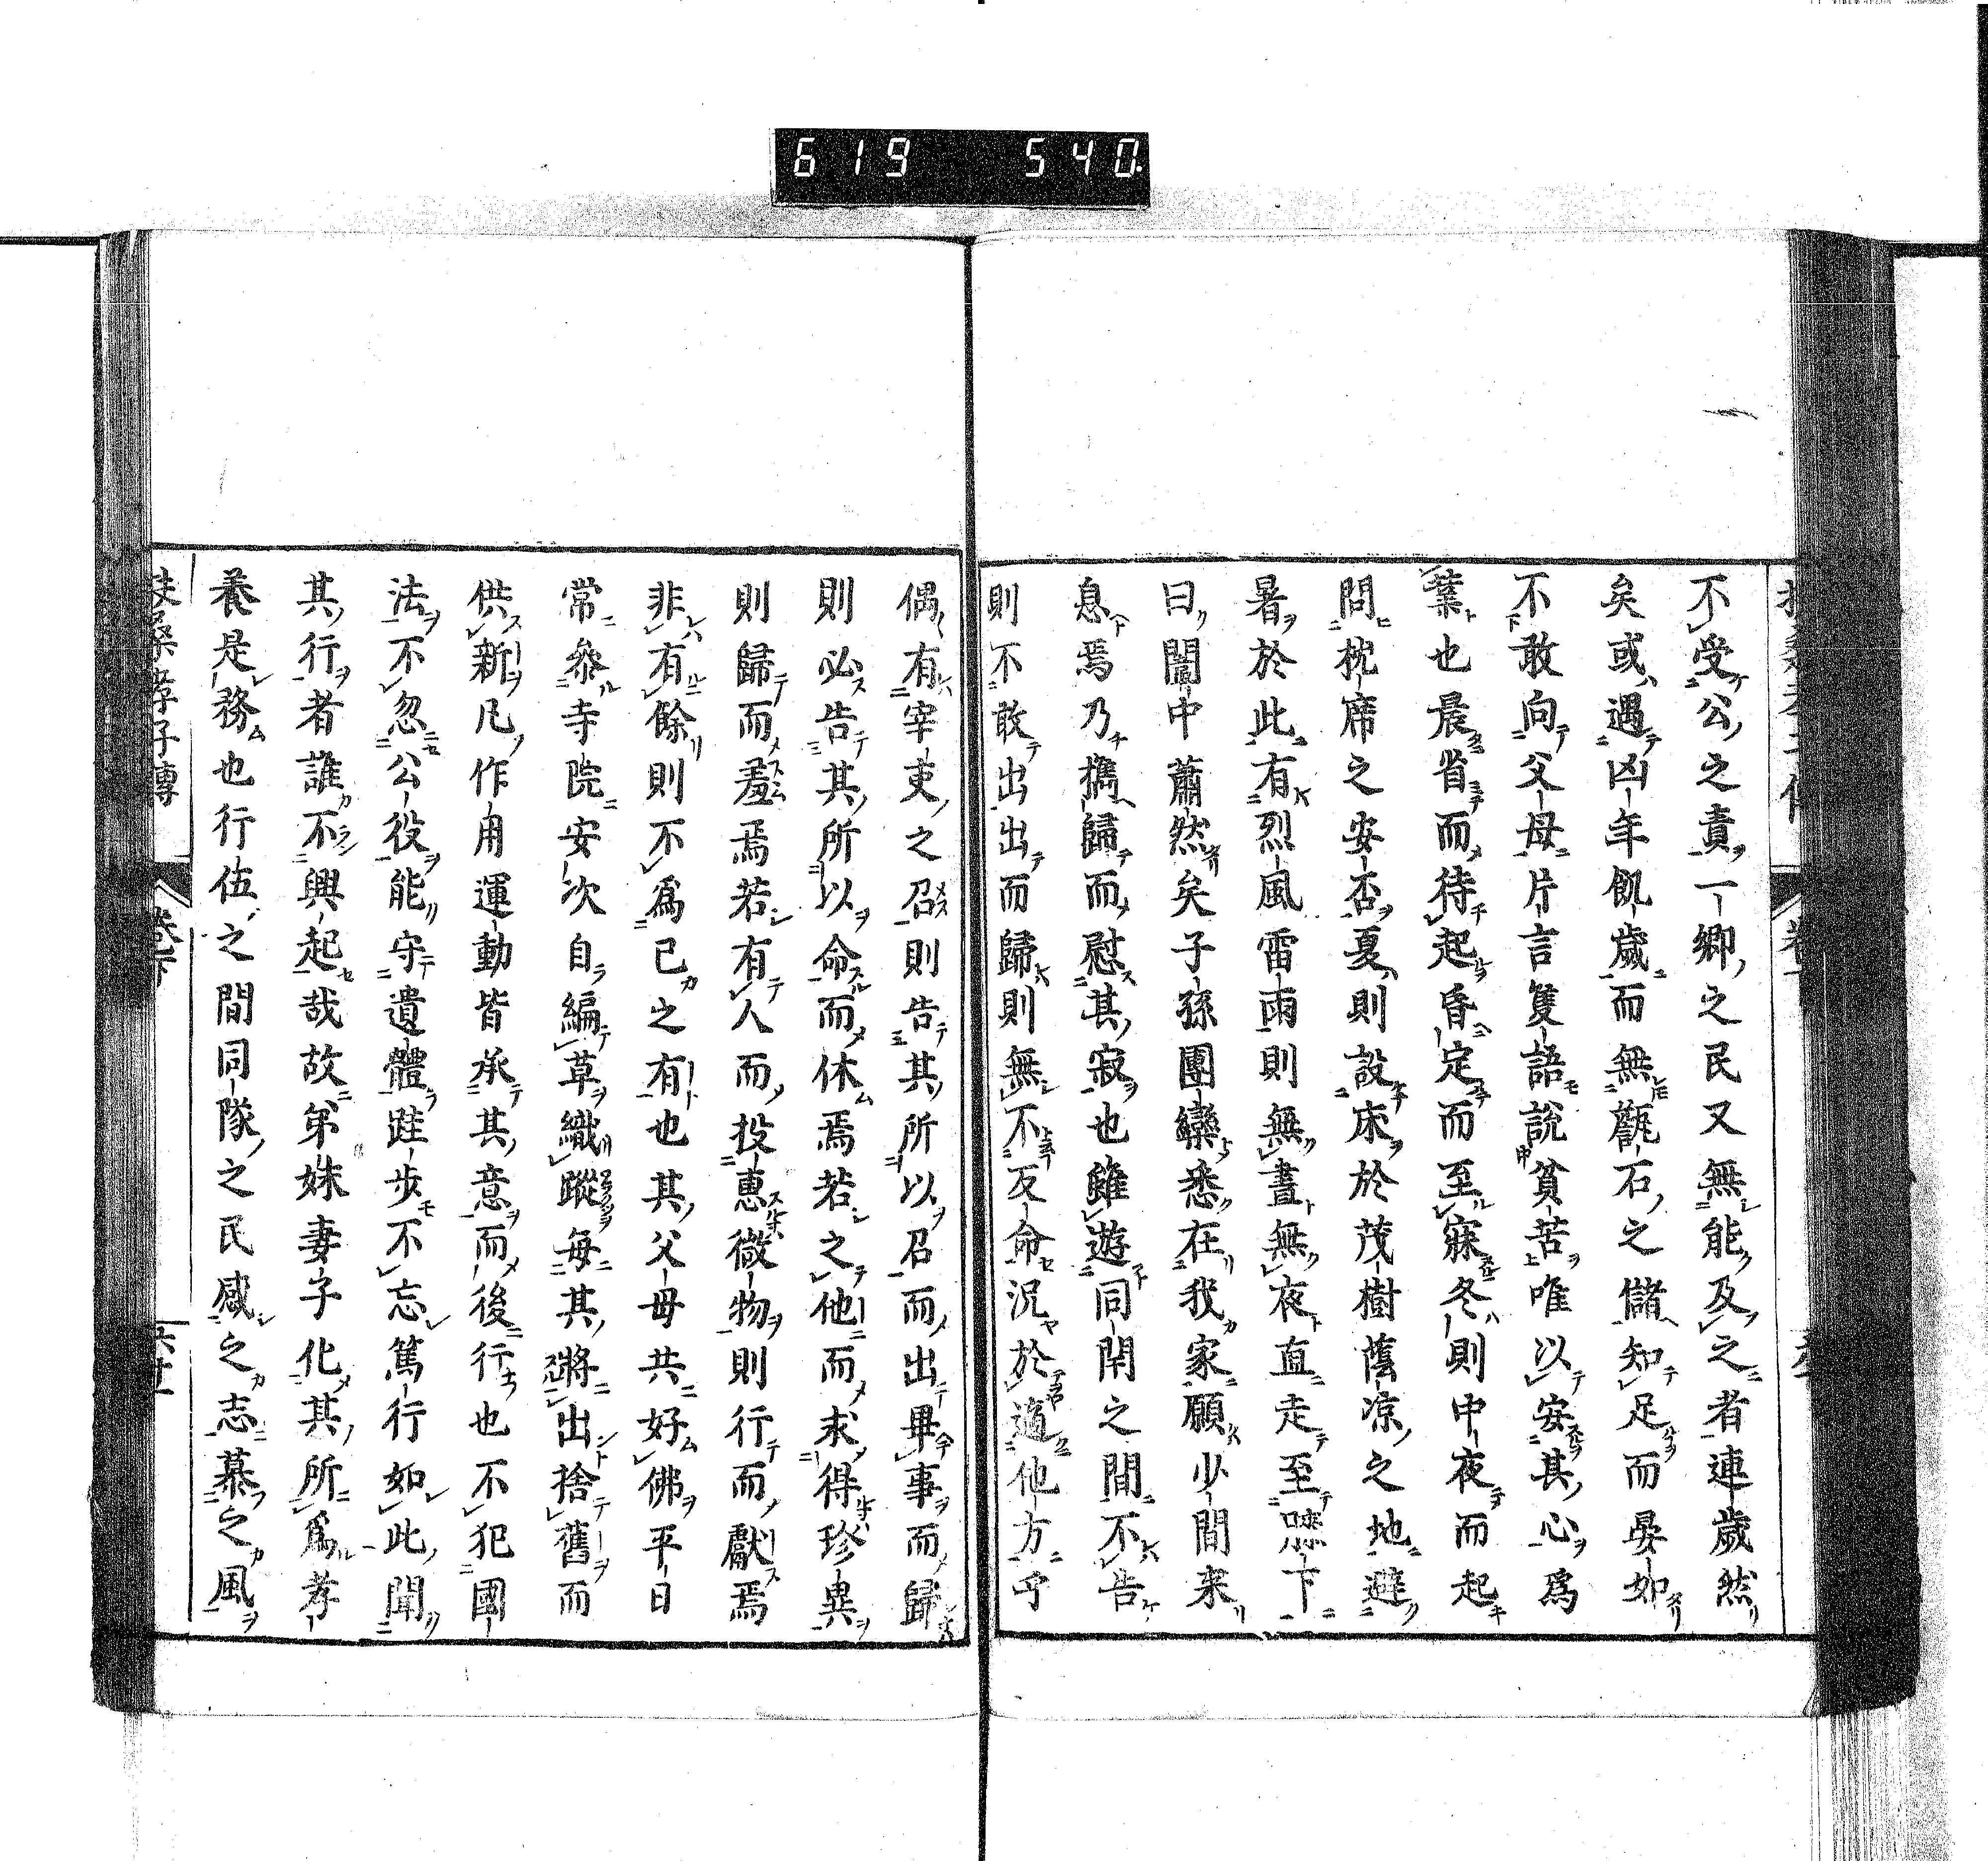 619 540.
不受公之責一鄉之民又無能及之者連歲然
矣或遇凶年飢歲而無甔石之儲知足而晏如
不敢向父母片言隻語說貧苦唯以安其心爲
葉也晨省而待起昏定而至寐冬則中夜而起
問枕席之安否夏則設床於茂樹蔭凉之地避
暑於此有烈風雷雨則無晝無夜直走至膝下
曰闇中蕭然矣子孫團欒悉在我家願少間来
息焉乃携歸而慰其寂也雖遊同閈之間不告
則不敢出出而歸則無不反命況於適他方乎
偶有宰吏之召則告其所以召而出畢事而歸
則必告其所以命而休焉若之他而求得珍異
則歸而羞焉若有人而投惠微物則行而獻焉
非有餘則不爲已之有也其父母共好佛平日
常參寺院安次自編草織蹤每其將出捨舊而
供新凡作用運動皆承其意而後行也不犯國
法不忽公役能守遺體跬步不忘篤行如此聞
其行者誰不興起哉故弟妹妻子化其所爲孝
養是務也行伍之間同隊之民感之志慕之風
扶桑孝子傳 卷下